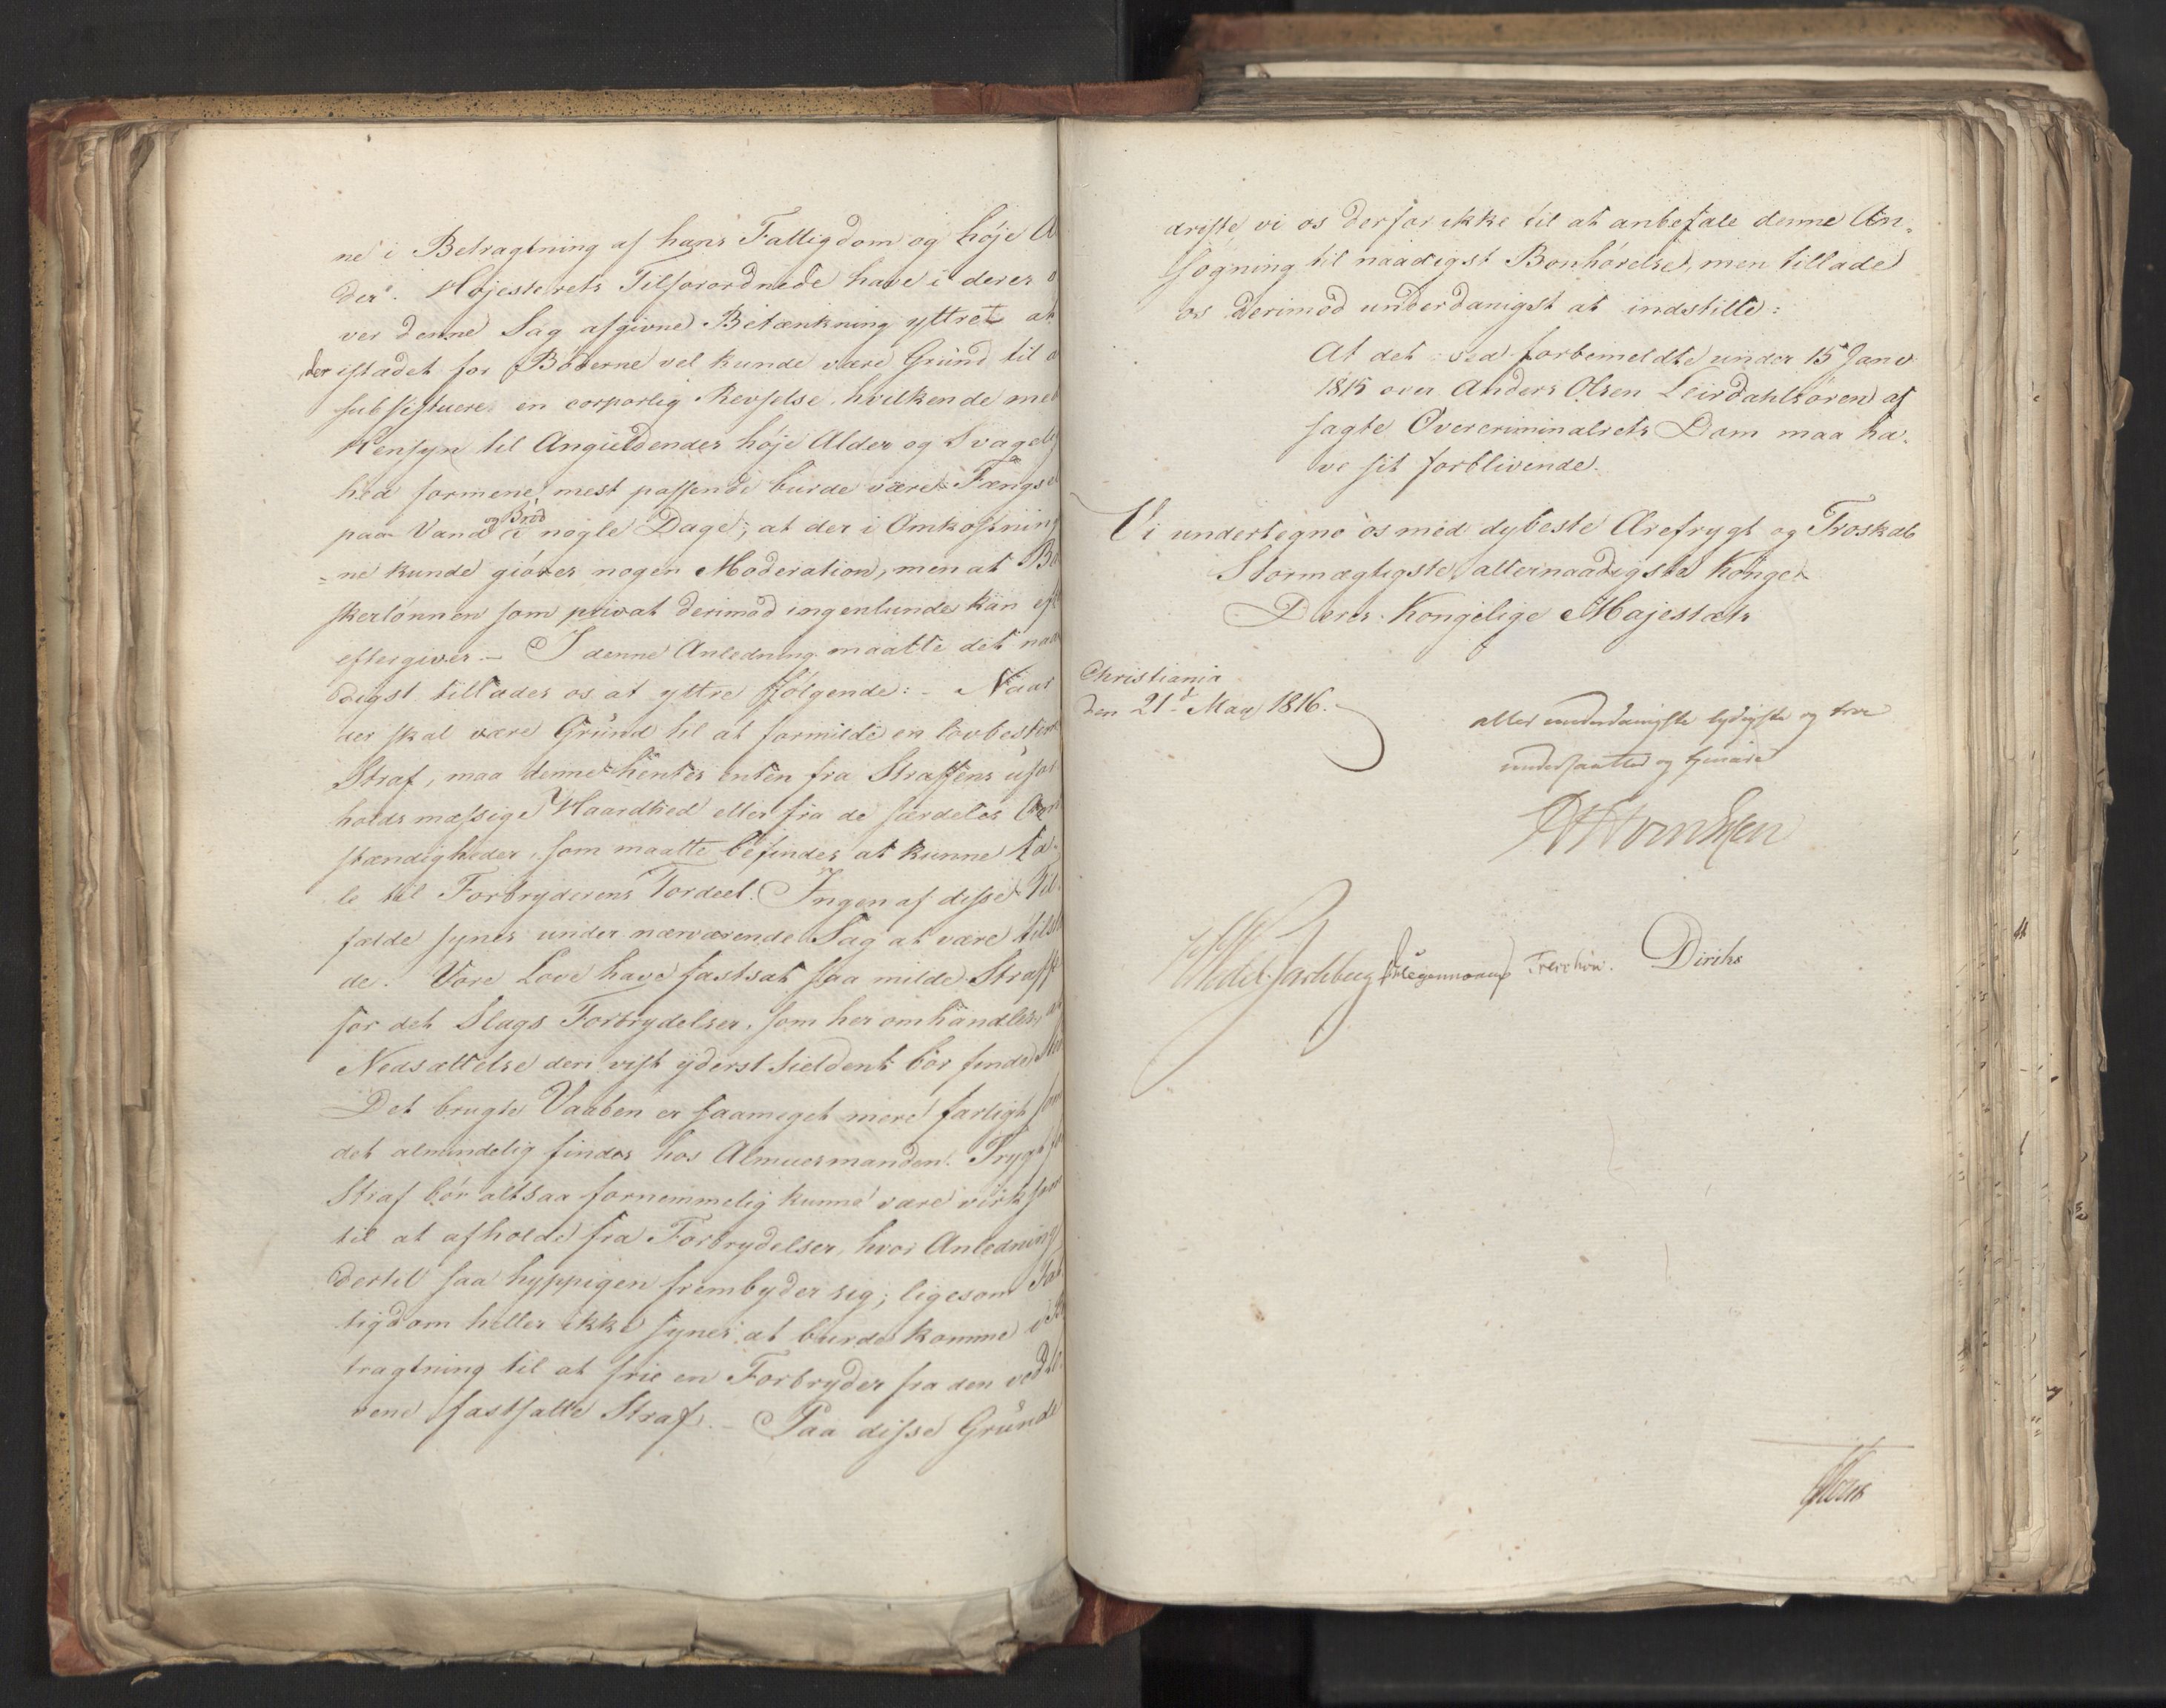 ne i Betragtning af hans Fattigdom og høje A
der. Højesterets Tilforordnede have i deres o
ver denne Sag afgivne Betænkning yttret at
der istædet for Bøderne vel kunde være Grund til a
subsistuere en corporlig Revselse, hvilkende med
Hensyn til Angieldendes høje Alder og Svagelig
hed formene mest passende burde være Fængsel
paa Vand og Brød i nogle Dage; at der i Omkostnin
ne kunde giøres nogen Moderation, men at Bø
skerlønnen som privat derimod ingenlunde kan
eftergives. – I denne Anledning maatte det naa
digst tillades os at yttre følgende: – Naar
der skal være Grund til at formilde en lovbestemt
Straf, maa denne hentes enten fra Straffens ufor
holdsmæssige Haardhed eller fra de særdeles Om
stændigheder, som maatte befindes at kunne ta-
le til Forbryderens Fordeel. Ingen af disse Til-
fælde synes under nærværende Sag at være tilstæ
de. Vore Love have fastsat saa milde Straffe
for det Slags Forbrydelser, som her omhandles, at
Nedsættelse deri vist yderst sieldent bør finde
Det brugte Vaaben er saameget mere farligt som
det almindelig findes hos Almuesmanden. Frygt for
Straf bør altsaa fornemmelig kunne være virksom
til at afholde fra Forbrydelser, hvor Anledning
dertil saa hyppigen frembyder sig; ligesom Fat
tigdom heller ikke synes at burde komme i Be
tragtning til at frie en Forbryder fra den ved Lo-
vene fastsatte Straf. – Paa disse Grunde
driste vi os derfor ikke til at anbefale denne An-
søgning til naadigst Bønhørelse, men tillade
os derimod underdanigst at indstille:
At det ved forbemeldte under 15de Janv
1815 over Anders Olsen Leirdahlsøren af
sagte Overcriminalrets Dom maa ha-
ve sit forblivende.
Vi undertegne os med dybeste Ærefrygt og Troskab
Stormægtigste, allernaadigste Konge
Deres Kongelige Majestæts
Christiania
den 21d May 1816.
allerunderdanigste lydigste og troe
undersaatter og tjenere
Wedel Jarlsberg Treschow. Diriks